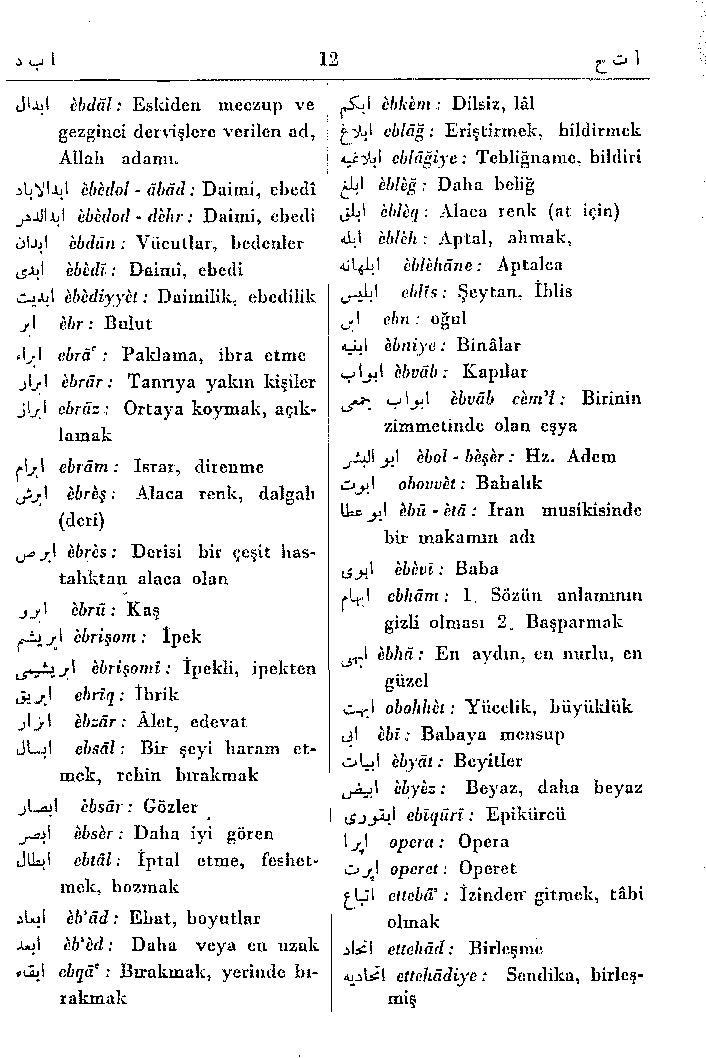 ا ب د 12 ا ت ح
ابدال èbdāl : Eskiden meczup ve
gezginci dervişlere verilen ad,
Allah adamı.
ابدالآباد èbèdol - ābād : Daimi, ebedî
ابدالدهر èbèdod - dèhr : Daimi, ebedi
ابدان èbdān : Vücutlar, bedenler
ابدی èbèdī : Daimi, ebedi
ابدیت èbèdiyyèt : Daimilik, ebedilik
ابر èbr : Bulut
ابراء ebrā' : Paklama, ibra etme
ابرار èbrār : Tanrıya yakın kişiler
ابراز ebrāz : Ortaya koymak, açık-
lamak
ابرام ebrām : Israr, direnme
ابرش èbrèş : Alaca renk, dalgalı
(deri)
ابرص èbrès : Derisi bir çeşit has-
talıktan alaca olan
ابرو èbrū : Kaş
ابریشم ebrişom : İpek
ابریشمی èbrişomī : İpekli, ipekten
ابریق ebrīq : İbrik
ابزار èbzār : Âlet, edevat
ابسال ebsāl : Bir şeyi haram et-
mek, rehin bırakmak
ابصار èbsār : Gözler
ابصر èbsèr : Daha iyi gören
ابطال ebtāl : İptal etme, feshet-
mek, bozmak
ابعاد èb'ād : Ebat, boyutlar
ابعد èb'èd : Daha veya en uzak
ابقاء ebqā' : Bırakmak, yerinde bı-
rakmak
ابکم èbkèm : Dilsiz, lâl
ابلاغ eblāğ : Eriştirmek, bildirmek
ابلاغیه eblāğiye : Tebliğname, bildiri
ابلغ èblèğ : Daha beliğ
ابلق èblèq : Alaca renk (at için)
ابله èblèh : Aptal, ahmak,
ابلهانه èblèhāne : Aptalca
ابلیس eblīs : Şeytan, İblis
ابن ebn : oğul
ابنیه èbniye : Binâlar
ابواب èbvāb : Kapılar
ابواب جمعی èbvāb cèm'ī : Birinin
zimmetinde olan eşya
ابو البشر èbol - bèşèr : Hz. Adem
ابوت obovvèt : Babalık
ابو عطا èbū - ètā : Iran musikisinde
bir makamın adı
ابوی èbèvī : Baba
ابهام ebhām : 1. Sözün anlamının
gizli olması 2. Başparmak
ابهی èbhā : En aydın, en nurlu, en
güzel
ابهت obohhèt : Yücelik, büyüklük
ابی èbī : Babaya mensup
ابیات èbyāt : Beyitler
ابیض èbyèz : Beyaz, daha beyaz
ابیقوری ebīqūrī : Epikürcü
اپرا opera : Opera
اپرت operet : Operet
اتباع ettebā' : İzinden gitmek, tâbi
olmak
اتحاد ettehād : Birleşme
اتحادیه ettehādiye : Sendika, birleş-
miş